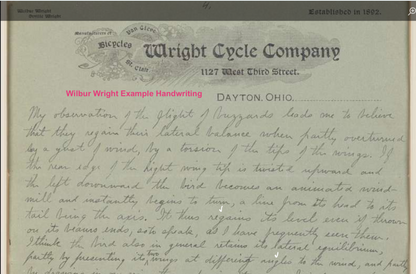 4.
Wilbur Wright
Orville Wright
Established in 1892.
Manufacturers of
Van Cleve
Bicycles
St. Clair
Wright Cycle Company
1127 West Third Street.
Wilbur Wright Example Handwriting
DAYTON, OHIO
My observation of the flight of buzzards leads me to believe
that they regain their lateral balance when partly overturned
by a gust of wind, by a torsion of the tips of the wings. If
the rear edge of the right wing tip is twisted upward and
the left downward the bird becomes an animated wind-
mill and instantly begins to turn, a line from its head to its
tail being the axis. It thus regains its level even if thrown
on its beam ends, so to speak, as I have frequently seen them.
I think the bird also in general retains its lateral equilibrium,
partly by presenting its two wings at different angles to the wind, and partly